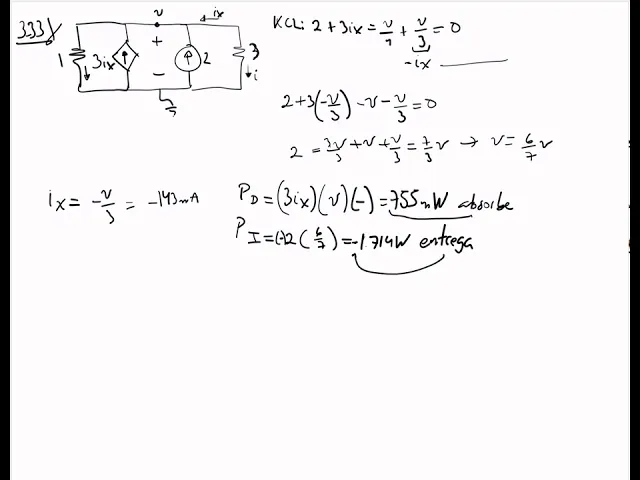 3.33)
v
ix
1
3ix
+
-
2
3
i
KCL: 2 + 3ix = v/1 + v/3 = 0
-ix
2 + 3(-v/3) - v - v/3 = 0
2 = 3v/3 + v + v/3 = 7/3 v → v = 6/7 v
ix = -v/3 = -143mA
PD = (3ix)(v)(-) = 755mW absorbe
PI = (-)2(6/7) = -1.714W entrega